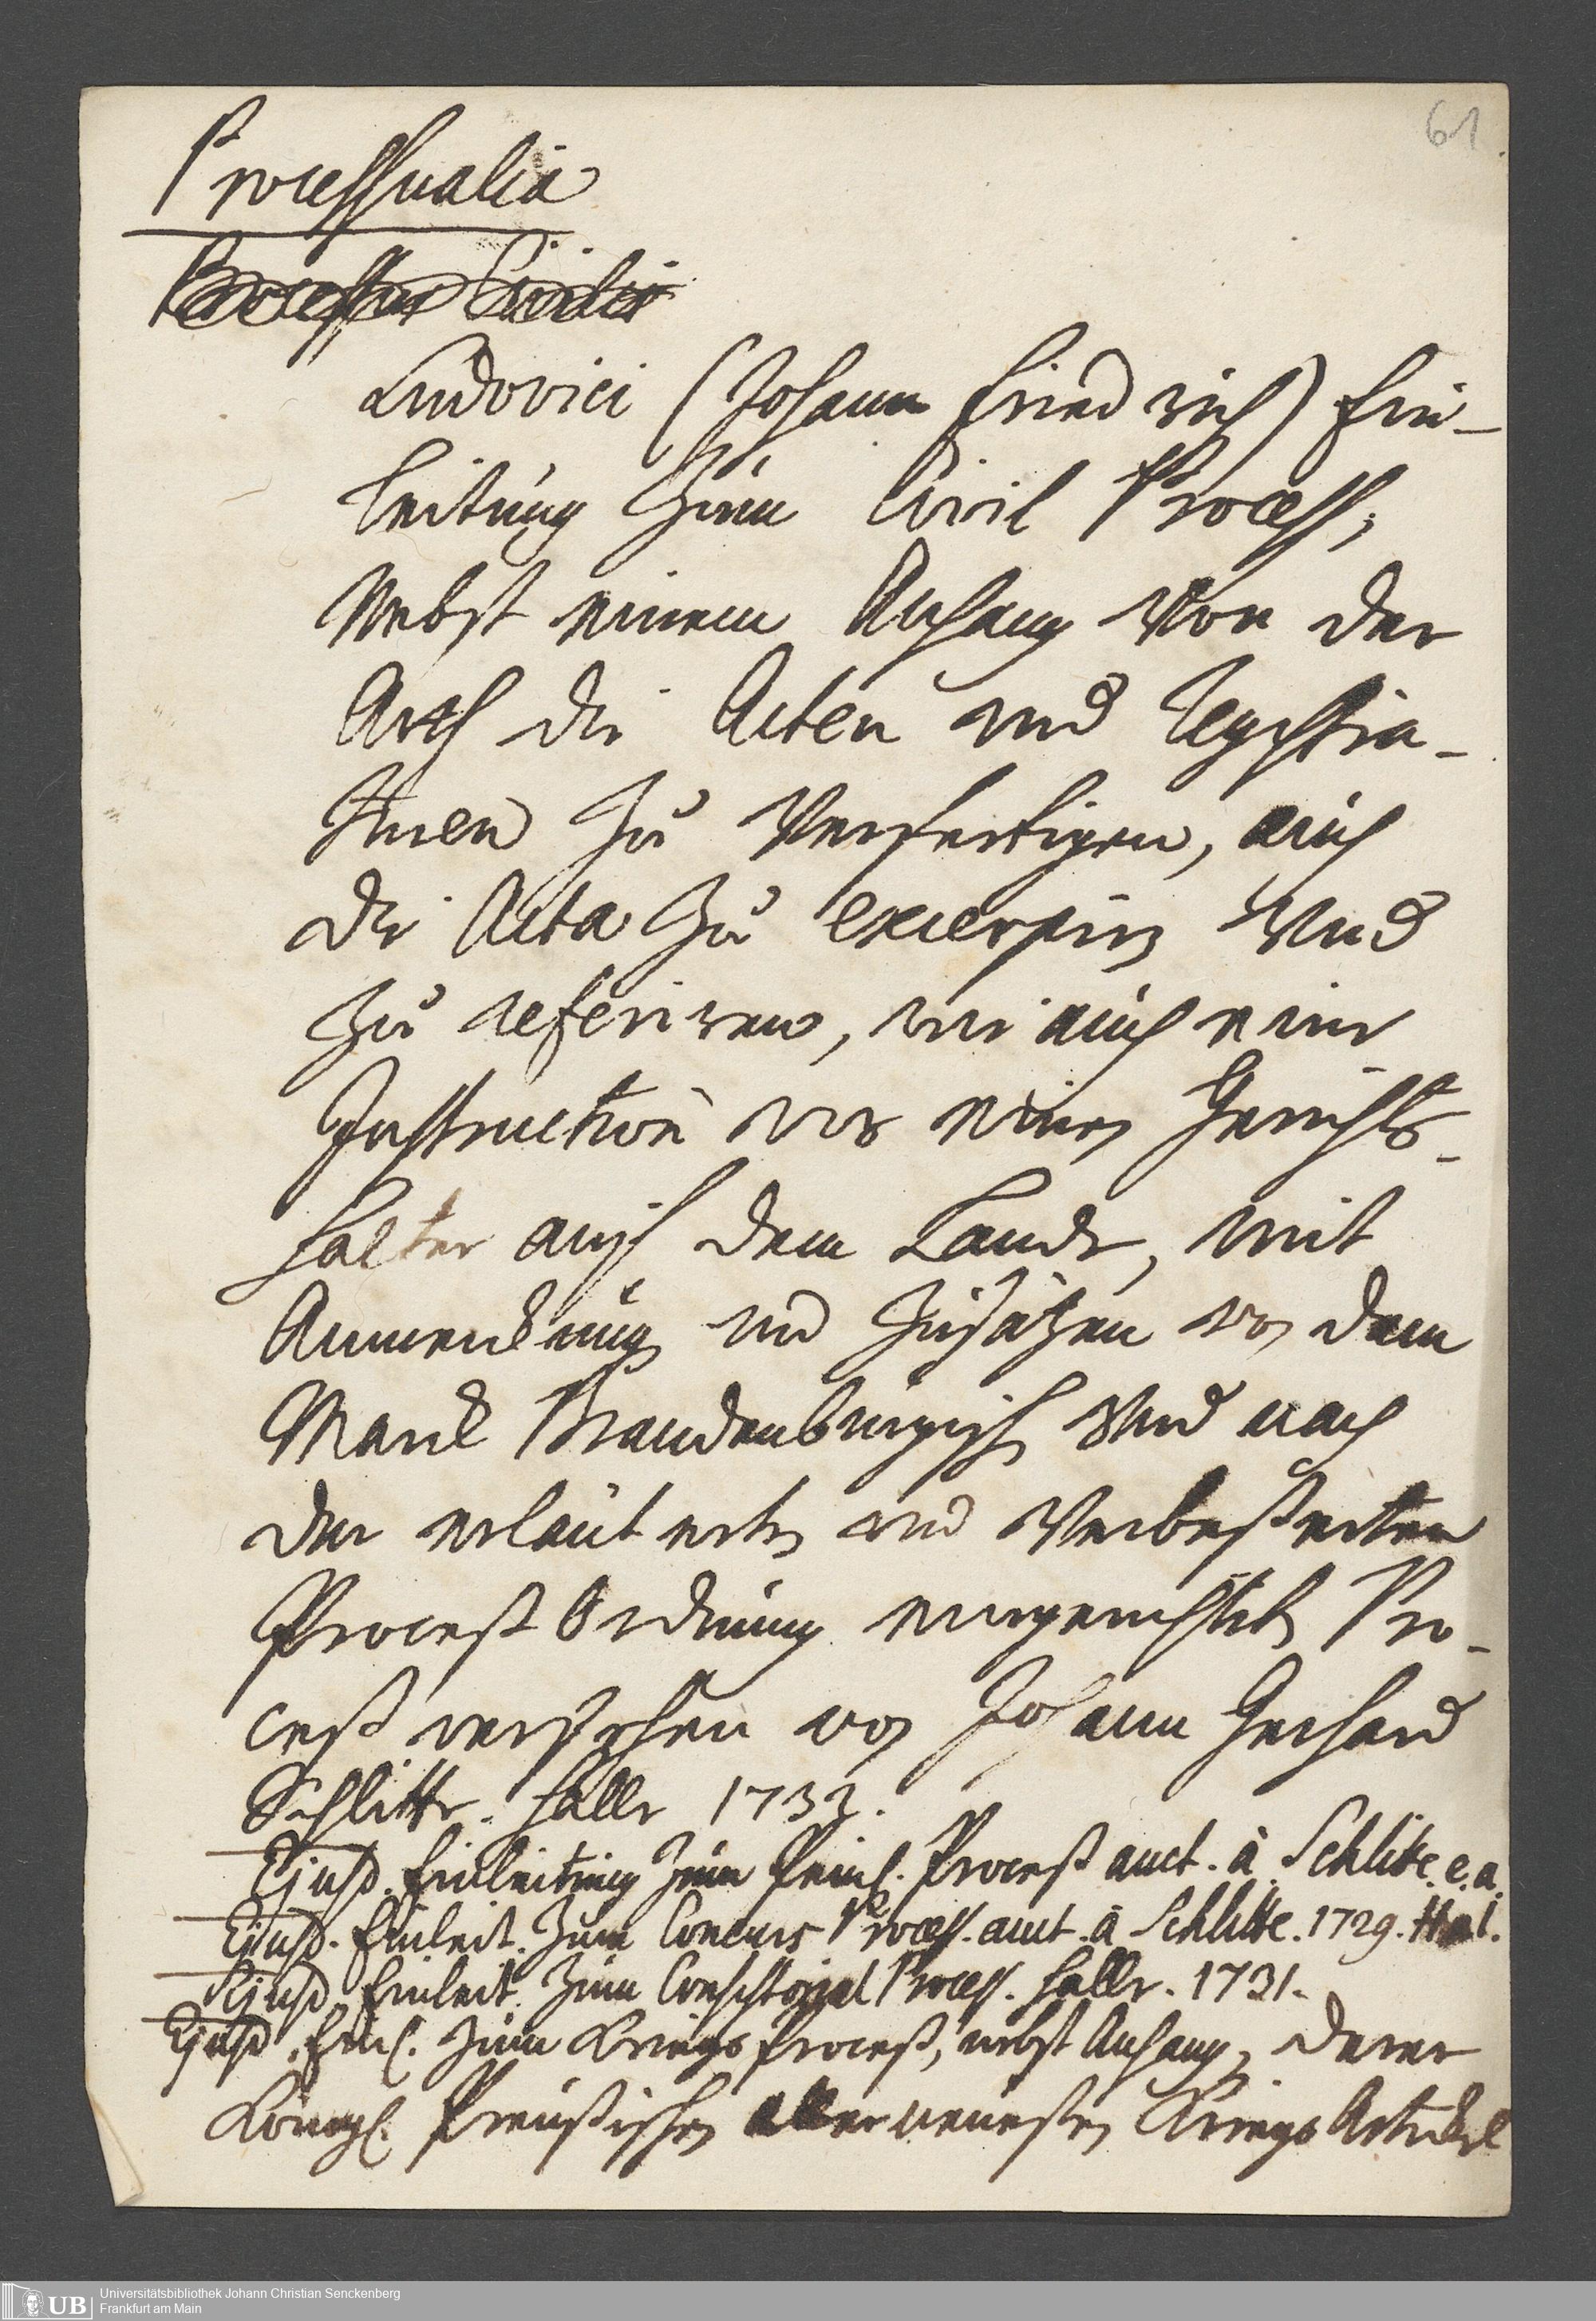 61.
Processualia
Processus Civilis
Ludovici (Johann Friedrich) Ein-
leitung zum Civil Process,
Nebst einem Anhang Von der
Arth die Acten und Regystra-
turen zu Verfertigen, auch
die Acta zu excerpiren Und
zu referiren, wie auch eine
Instruction vor einen Gerichts-
halter auf dem Lande, mit
Anmerckung und Zusätzen von dem
Marck Brandenburgisch Und nach
der erläuterten und Verbeßerten
Proceß Ordnung eingerichteten Pro-
ceß versehen von Johann Gerhard
Schlitte. Halle 1732.
Ejusd. Einleitung zum Peinl. Proceß auct. à Schlitte. e.a.
Ejusd. Einleit. zum Concurs Process. auct. à Schlitte. 1729. Hal.
Ejusd. Einleit. zum Consistorial Process. Halle. 1731.
Ejusd. Einl. zum Kriegs Proceß, nebst Anhang, derer
Königl. Preußischen allerneuesten Kriegs Articul
UB
Universitätsbibliothek Johann Christian Senckenberg
Frankfurt am Main